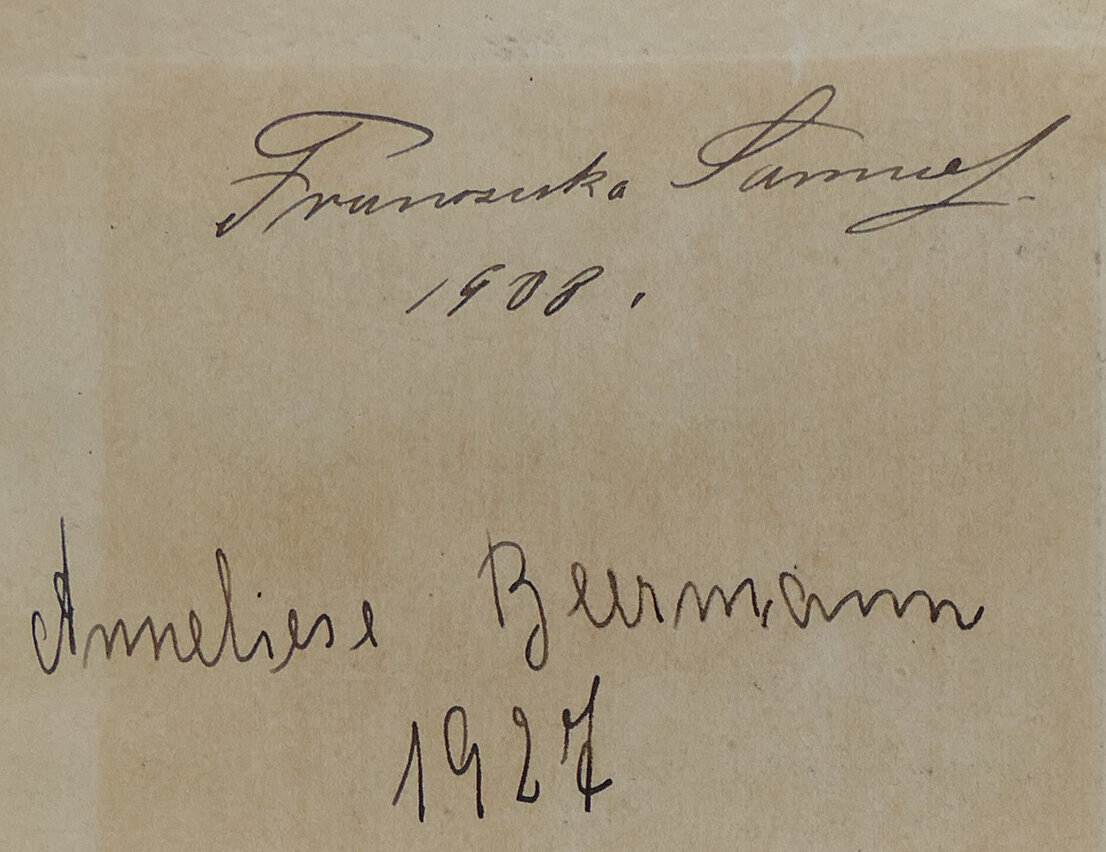 Franziska Samuel.
1908.
Anneliese Beermann
1927